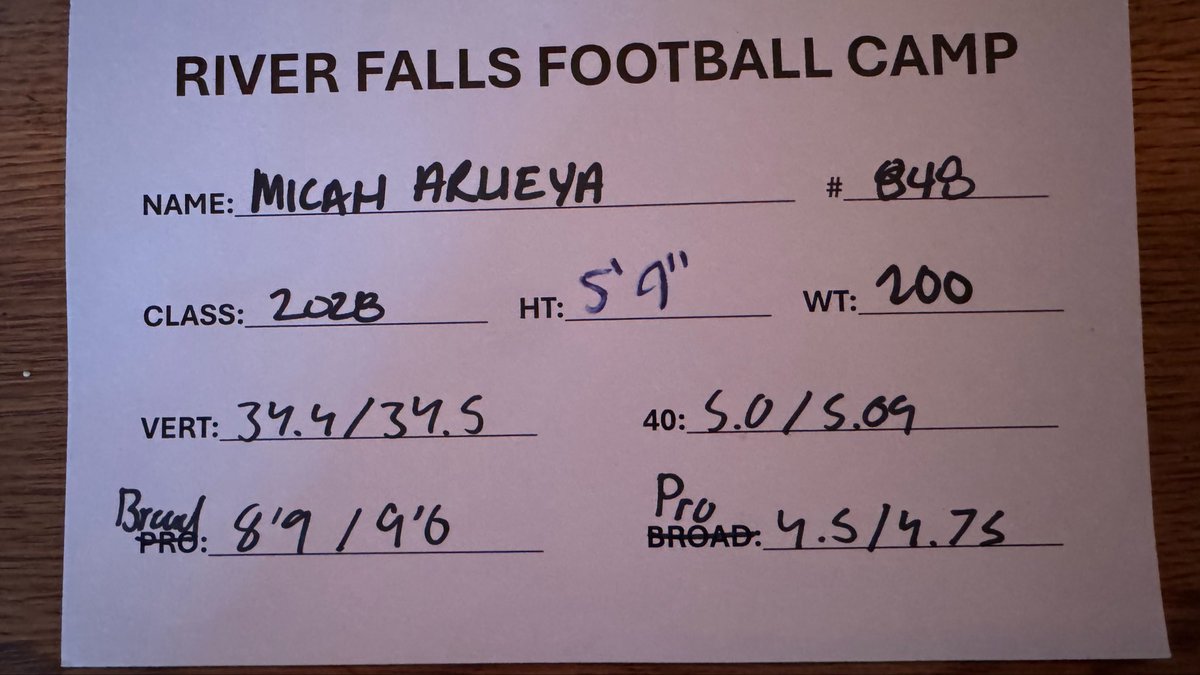 RIVER FALLS FOOTBALL CAMP
NAME: MICAH ARUEYA # 848
CLASS: 2028 HT: 5'9" WT: 200
VERT: 34.4/34.5 40: 5.0/5.09
Broad Pro
PRO: 8'9 / 9'6 BROAD: 4.5/4.75